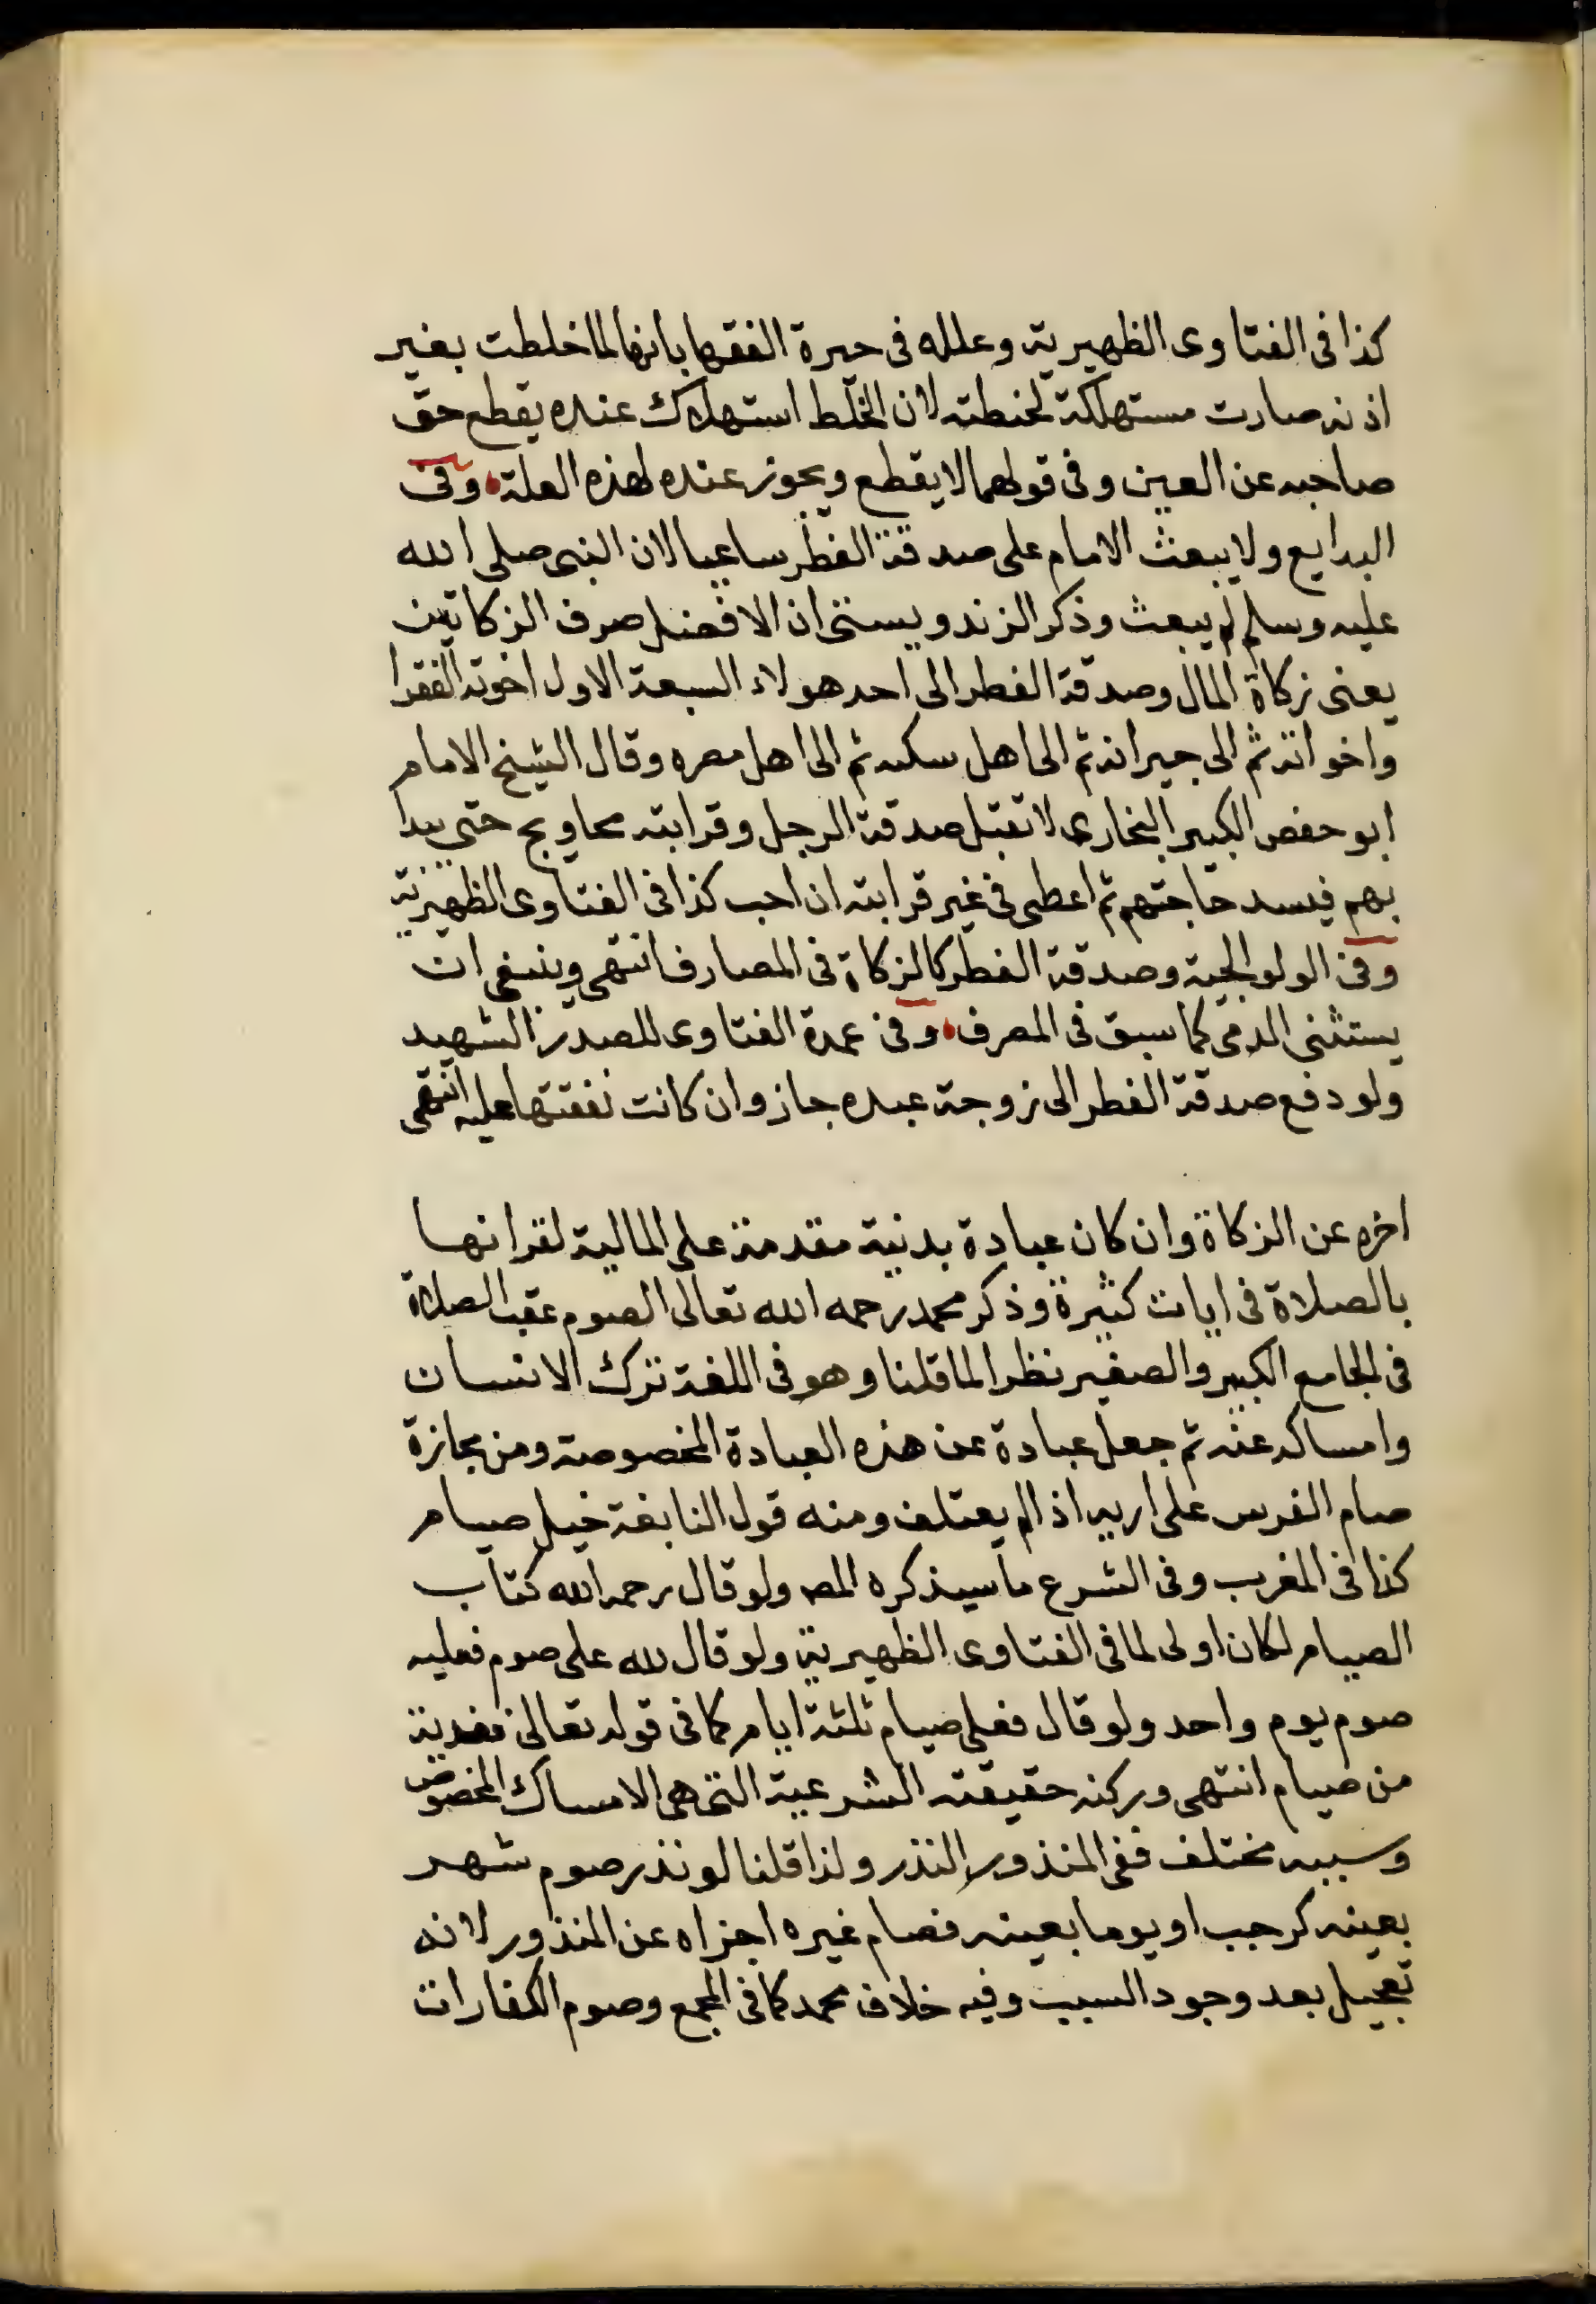 كذا فى الفتاوى الظهيرية وعلله فى حيرة الفقها بانها لما خلطت بغير
اذنه صارت مستهلكة لحنطته لان الخلط استهلاك عنده يقطع حق
صاحبه عن العين وفى قولهما لا يقطع ويجوز عنده لهذه العلة وفى
البدايع ولا يبعث الامام على صدقة الفطر ساعيا لان النبى صلى الله
عليه وسلم لم يبعث وذكر الزندويستى ان الافضل صرف الزكاتين
يعنى زكاة المال وصدقة الفطر الى احد هولاء السبعة الاول اخوته الفقرا
واخواته ثم الى جيرانه ثم الى اهل سكنه ثم الى اهل مصره وقال الشيخ الامام
ابو حفص الكبير البخارى لا تقبل صدقة الرجل وقرابته محاويج حتى يبدا
بهم فيسد حاجتهم ثم اعطى فى غير قرابته ان احب كذا فى الفتاوى الظهيرية
وفى الولوالجية وصدقة الفطر كالزكاة فى المصارف انتهى وينبغى ان
يستثنى الذمى كما سبق فى المصرف وفى عمدة الفتاوى للصدر الشهيد
ولو دفع صدقة الفطر الى زوجة عبده جاز وان كانت نفقتها عليه انتهى
اخره عن الزكاة وان كان عبادة بدنية مقدمة على المالية لقرانها
بالصلاة فى ايات كثيرة وذكر محمد رحمه الله تعالى الصوم عقب الصلاة
فى الجامع الكبير والصغير نظرا لما قلنا وهو فى اللغة ترك الانسان
وامساكه عنه ثم جعل عبادة عن هذه العبادة المخصوصة ومن مجازة
صام الفرس على اريه اذا لم يعتلف ومنه قول النابغة خيل صيام
كذا فى المغرب وفى الشرع ما سيذكره المص ولو قال رحمه الله كتاب
الصيام لكان اولى لما فى الفتاوى الظهيرية ولو قال لله على صوم فعليه
صوم يوم واحد ولو قال فعلى صيام ثلثة ايام كما فى قوله تعالى ففدية
من صيام انتهى وركنه حقيقته الشرعية التى هى الامساك المخصوص
وسببه مختلف ففى المنذور النذر ولذا قلنا لو نذر صوم شهر
بعينه كرجب او يوما بعينه فصام غيره اجزاه عن المنذور لانه
تعجيل بعد وجود السبب وفيه خلاف محمد كما فى المجمع وصوم الكفارات